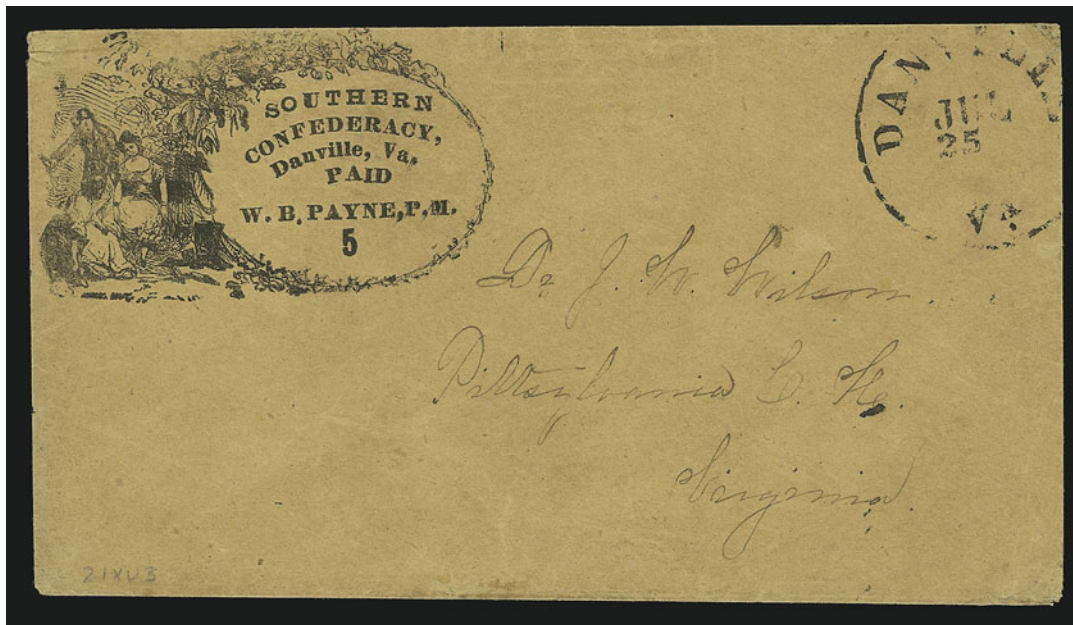 SOUTHERN
CONFEDERACY,
Danville, Va.
PAID
W. B. PAYNE, P.M.
5
DANVILLE
JUL
25
Va.
Dr J. W. Wilson.
Pittsylvania C. H.
Virginia.
21XU3